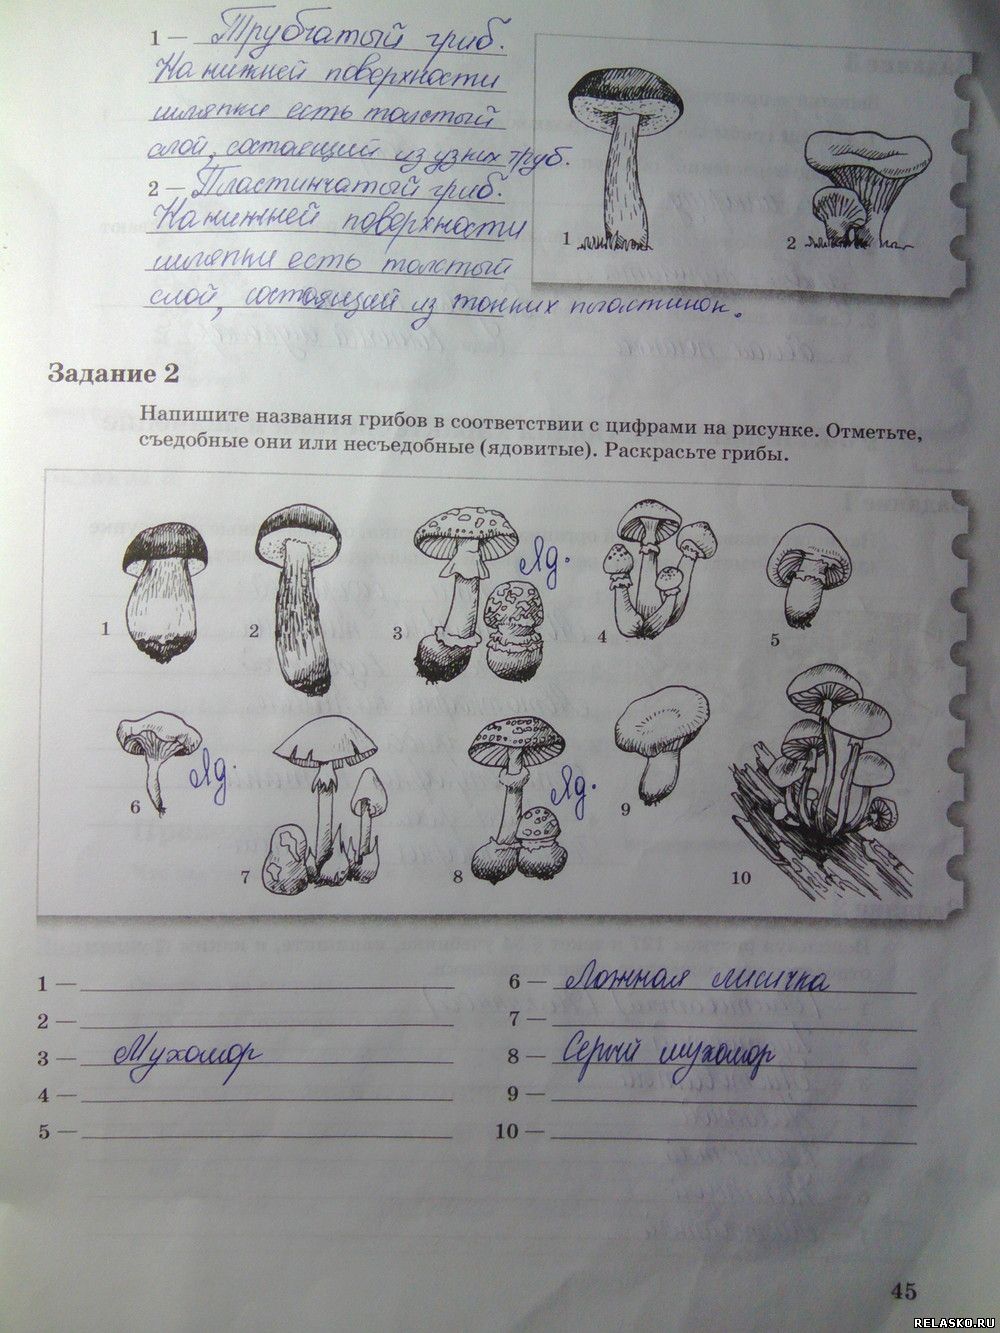 1 — Трубчатый гриб.
На нижней поверхности
шляпки есть толстый
слой, состоящий из узких труб.
2 — Пластинчатый гриб.
На нижней поверхности
шляпки есть толстый
слой, состоящий из тонких пластинок.
1
2
Задание 2
Напишите названия грибов в соответствии с цифрами на рисунке. Отметьте,
съедобные они или несъедобные (ядовитые). Раскрасьте грибы.
Яд.
1
2
3
4
5
Яд.
Яд.
6
7
8
9
10
1 —
2 —
3 — Мухомор
4 —
5 —
6 — Ложная лисичка
7 —
8 — Серый мухомор
9 —
10 —
45
RELASKO.RU